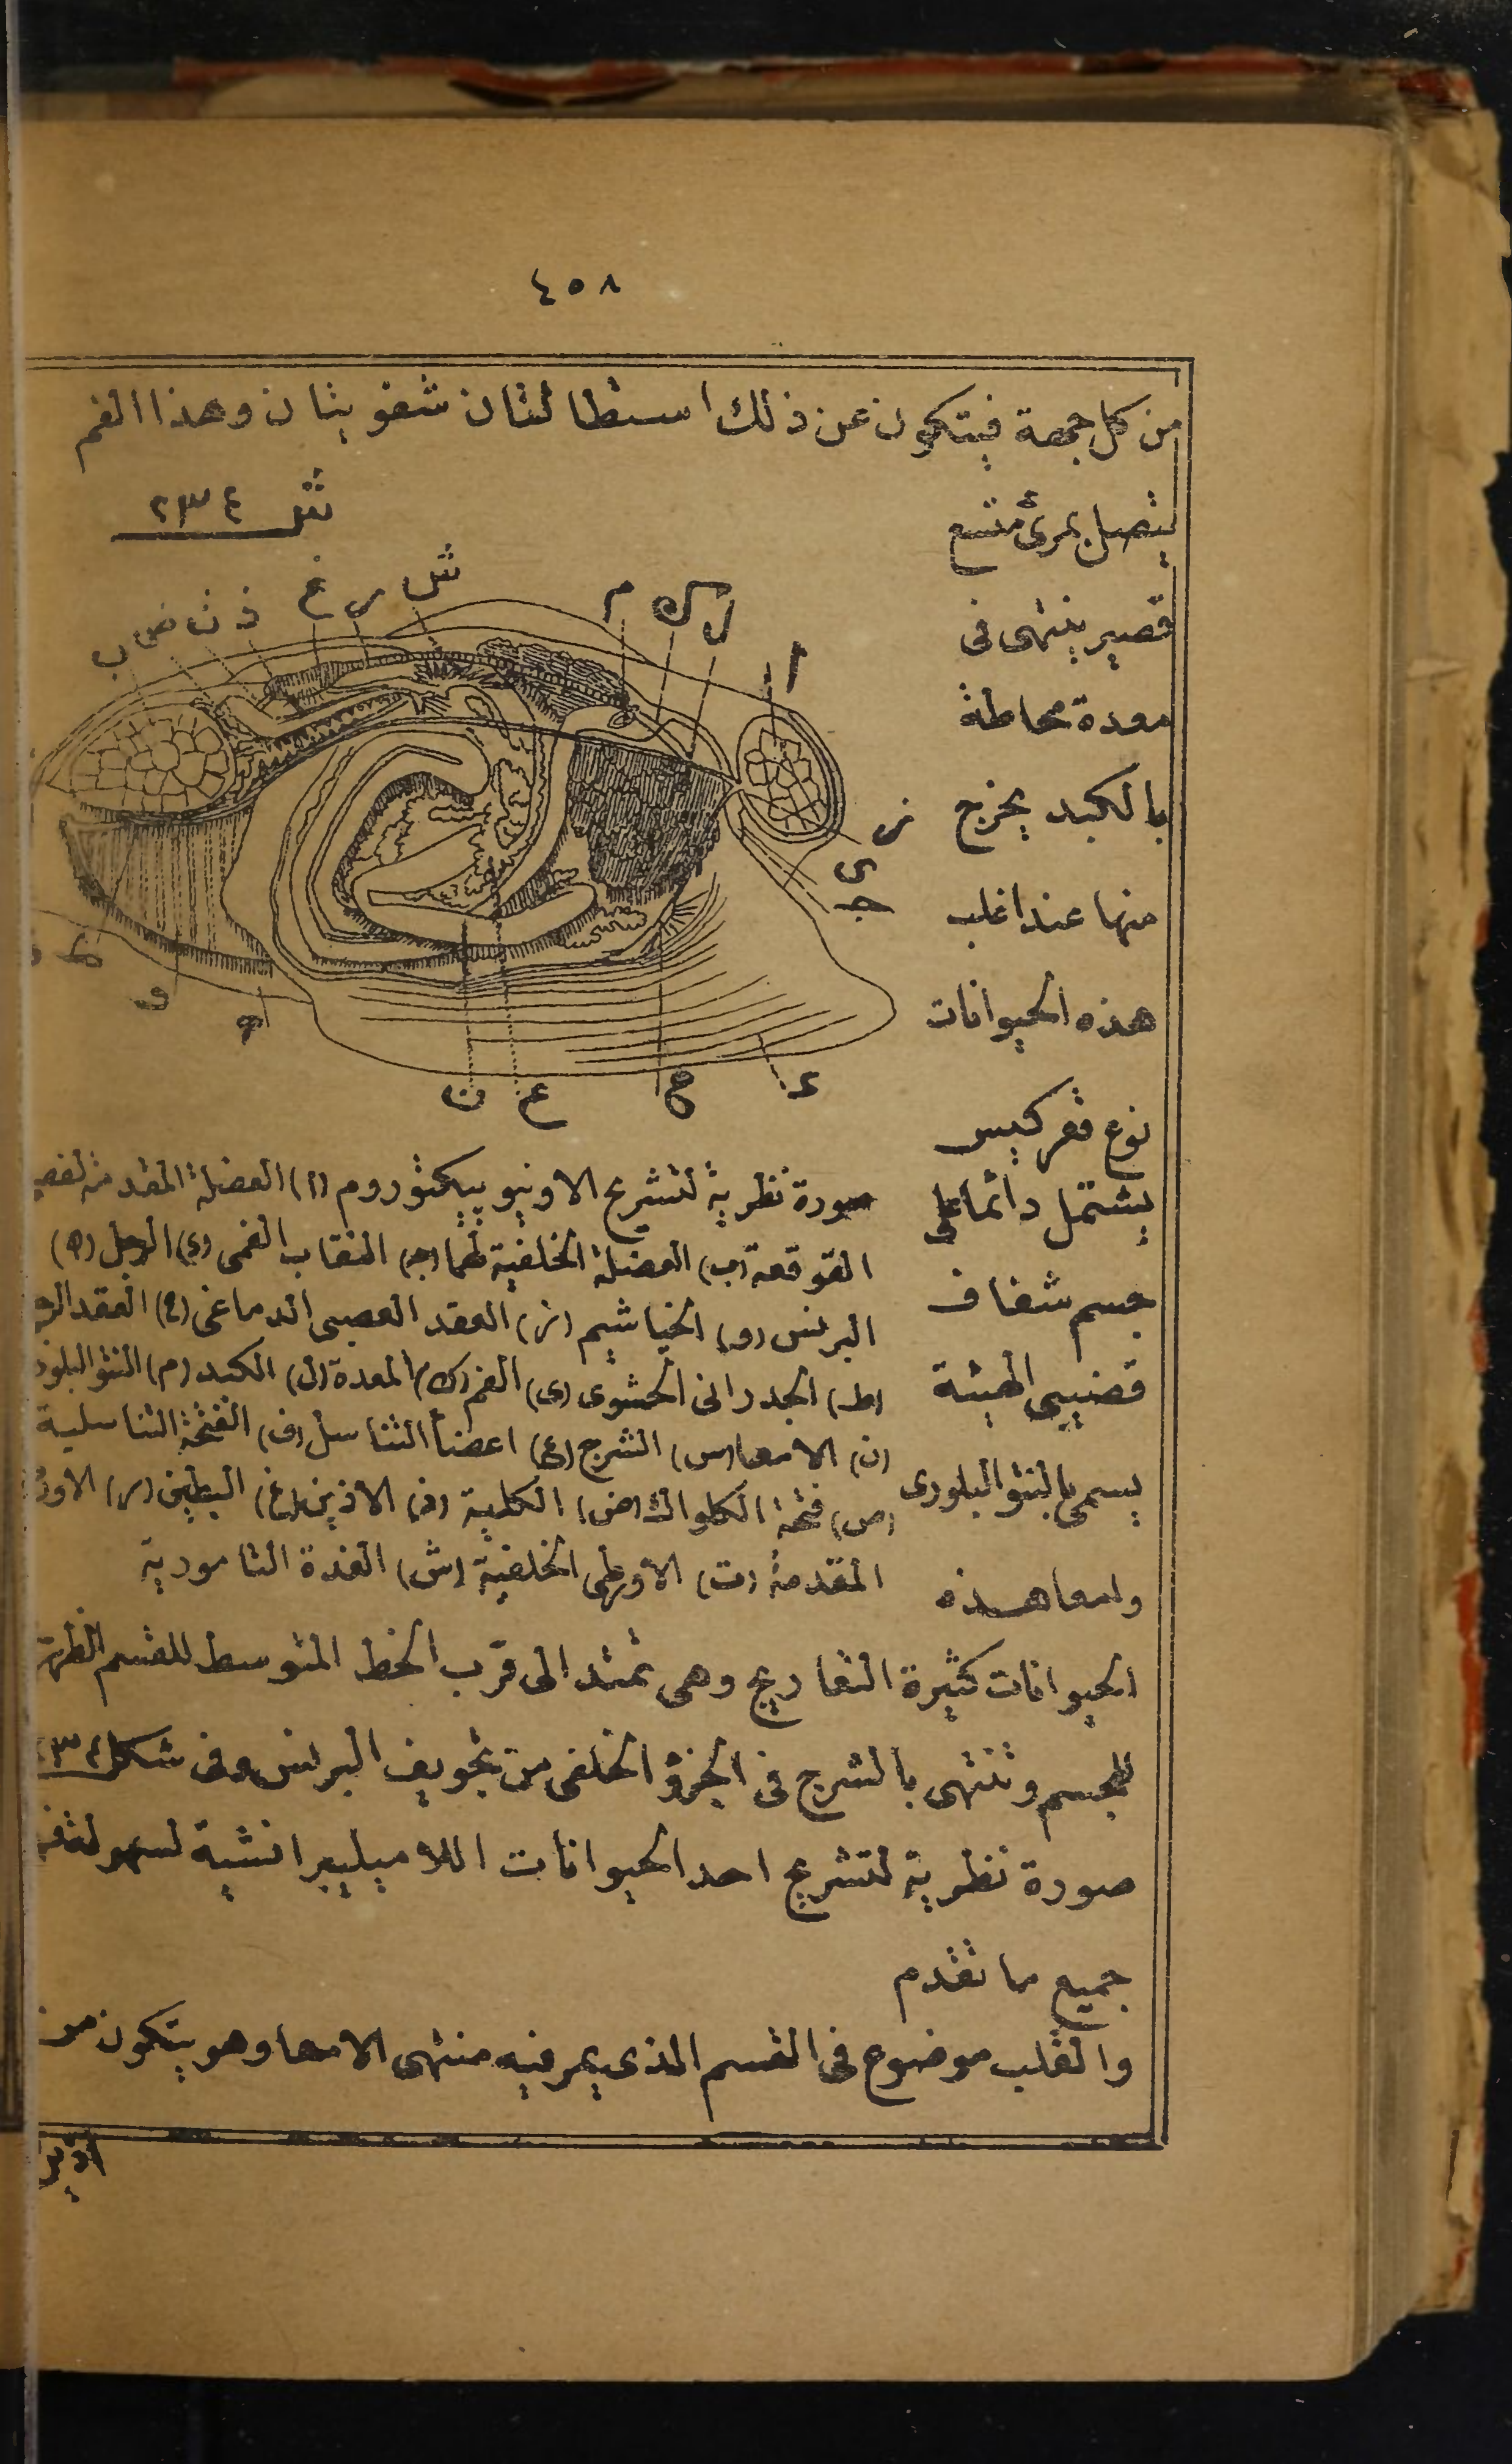 ٤٥٨
من كل جهة فيتكون عن ذلك استطالتان شفويتان وهذا الفم
شكل ٢٣٤
يتصل بمرئ متسع
قصير ينتهى فى
معدة محاطة
بالكبد يخرج
منها عند اغلب
هذه الحيوانات
نوع قعر كيس
يشتمل دائما على
جسم شفاف
قضيبى الهيئة
يسمى بالنتؤ البلورى
ولمعا هذه
ش ر غ ذ ث ض ب
م ك ل ا
ز
ى
ج
ط و ه
ن ع ح د
صورة نظرية لتشريح الاونيو بيكتوروم (ا) العضلة المقدمة لغم
القوقعة (ب) العضلة الخلفية لهما (ج) النقاب الفمى (د) الرجل (ه)
البرنس (و) الخياشيم (ز) العقد العصبى الدماغى (ح) العقد
(ط) الجدرانى الحشوى (ى) الفم (ك) المعدة (ل) الكبد (م) النتؤ البلور
(ن) الامعا (س) الشرج (ع) اعضأ التناسل (ف) الفتحة التناسلية
(ص) فتحة الكلوا (ض) الكلية (ذ) الاذين (غ) البطين (ر) الاور
المقدمة (ت) الاورطى الخلفية (ش) الغدة التامورية
الحيوانات كثيرة التعاريج وهى تمتد الى قرب الخط المتوسط للقسم الظهر
للجسم وتنتهى بالشرج فى الجزؤ الخلفى من تجويف البرنس وفى شكل ٢٣٤
صورة نظرية لتشريح احد الحيوانات اللاميليبرانشية لسهولة
جميع ما تقدم
والقلب موضوع فى القسم الذى يمر فيه منتهى الامعا وهو يتكون من